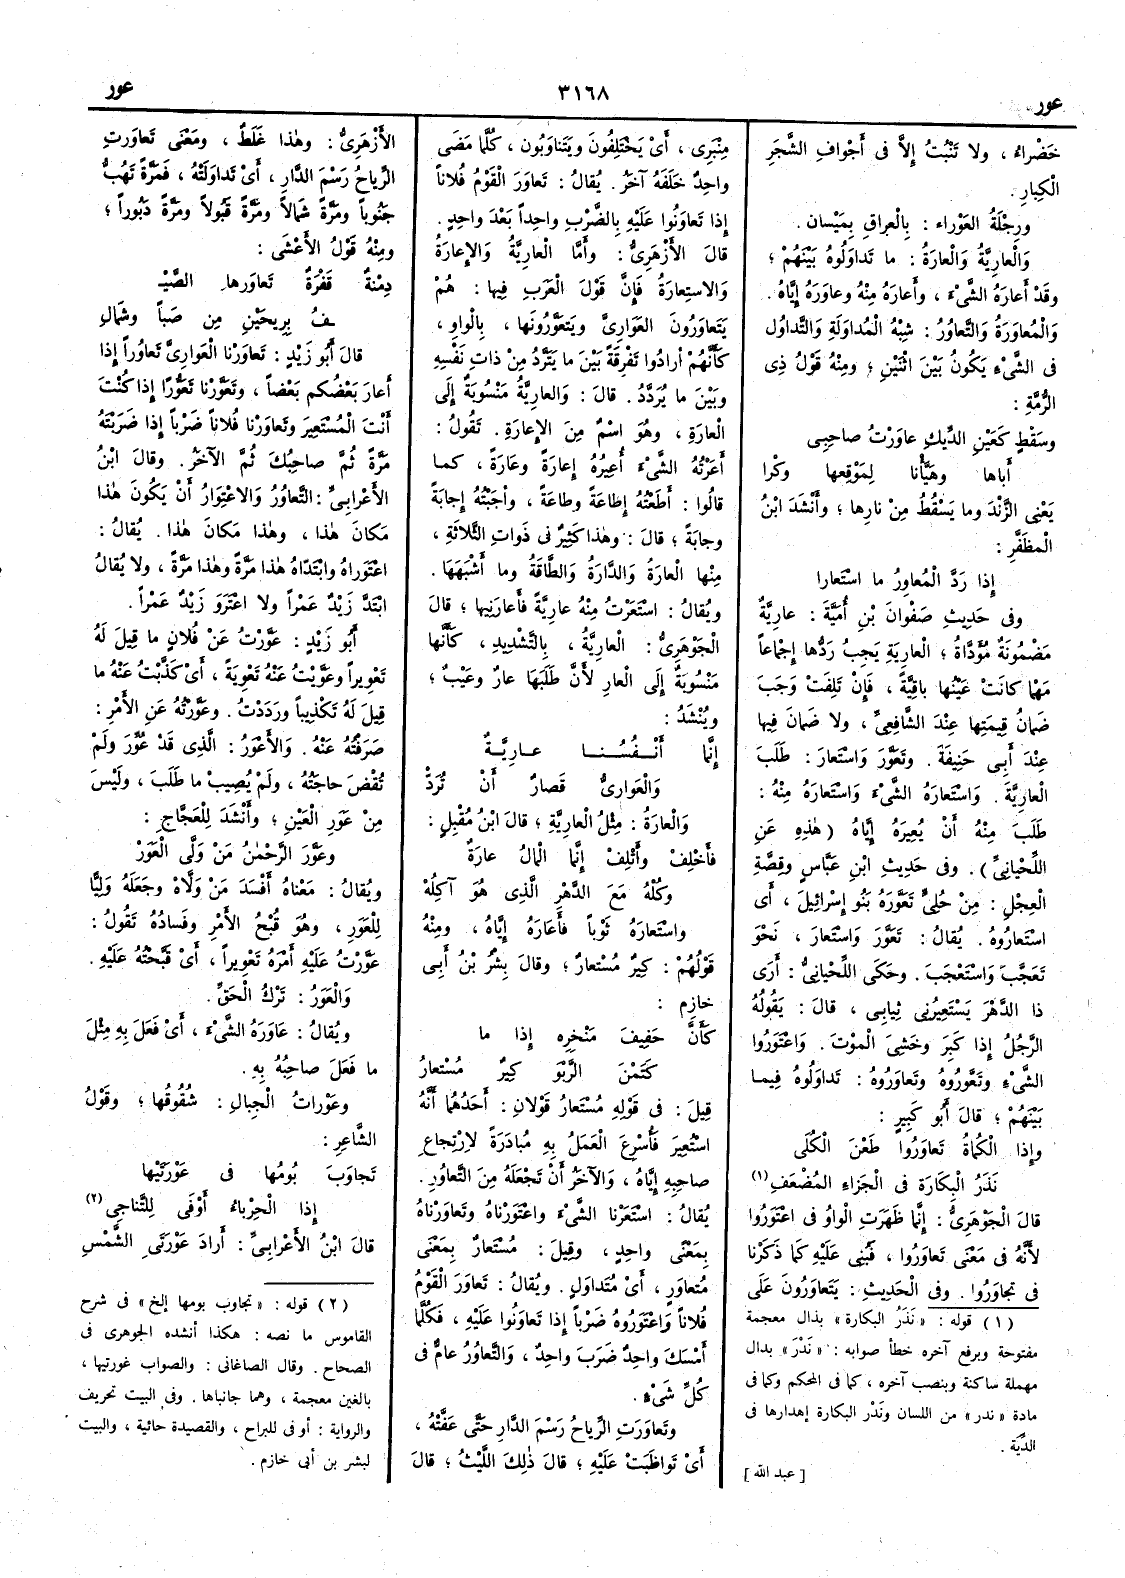 عور
٣١٦٨
عور
خَضْراءُ ، ولا تَنْبُتُ إلاَّ فى أَجْوافِ الشَّجَرِ
الْكِبارِ .
ورِجْلَةُ العَوْراء : بِالْعراقِ بِمَيْسان .
وَالْعارِيَّةُ وَالْعارَةُ : ما تَداوَلُوهُ بَيْنَهُمْ ؛
وقَدْ أَعارَهُ الشَّىْءَ ، وأَعارَهُ مِنْهُ وعاوَرَهُ إِيَّاهُ .
وَالْمُعاوَرَةُ وَالتَّعاوُرُ : شِبْهُ الْمُداوَلَةِ وَالتَّداوُل
فى الشَّىْءِ يَكُونُ بَيْنَ اثْنَيْنِ ؛ ومِنْهُ قَوْلُ ذِى
الرُّمَّةِ :
وسَقْطٍ كَعَيْنِ الدِّيكِ عاوَرْتُ صاحِبِى
أَباها وهَيَّأْنا لِمَوْقِعِها وكْرا
يَعْنِى الزَّنْدَ وما يَسْقُطُ مِنْ نارِها ؛ وأَنْشَدَ ابْنُ
الْمظَفَّرِ :
إِذا رَدَّ الْمُعاوِرُ ما اسْتَعارا
وفى حَدِيثِ صَفْوانَ بْنِ أُمَيَّةَ : عارِيَّةٌ
مَضْمُونَةٌ مُؤَدَّاةٌ ؛ الْعارِيَةِ يَجِبُ رَدُّها إِجْماعاً
مَهْما كانَتْ عَيْنُها باقِيَّةً ، فَإِنْ تَلِفَتْ وَجَبَ
ضَمانُ قِيمَتِها عِنْدَ الشَّافِعِىِّ ، ولا ضَمانَ فِيها
عِنْدَ أَبِى حَنِيفَةَ . وتَعَوَّرَ وَاسْتَعارَ : طَلَبَ
الْعارِيَّةَ . وَاسْتَعارَهُ الشَّىْءَ وَاسْتَعارَهُ مِنْهُ :
طَلَبَ مِنْهُ أَنْ يُعِيرَهُ إِيَّاهُ (هٰذِهِ عَنِ
اللِّحْيانِىِّ) . وفى حَدِيثِ ابْنِ عَبَّاسٍ وقِصَّةِ
الْعِجْلِ : مِنْ حُلِىٍّ تَعَوَّرَهُ بَنُو إِسْرائِيلَ ، أَى
اسْتَعارُوهُ . يُقالُ : تَعَوَّرَ وَاسْتَعارَ ، نَحْوَ
تَعَجَّبَ وَاسْتَعْجَبَ . وحَكَى اللِّحْيانِىُّ : أَرَى
ذا الدَّهْرَ يَسْتَعِيرُنِى ثِيابِى ، قالَ : يَقُولُهُ
الرَّجُلُ إِذا كَبِرَ وخَشِىَ الْموْتَ . وَاعْتَوَرُوا
الشَّىْءَ وتَعَوَّرُوهُ وتَعاوَرُوهُ : تَداوَلُوهُ فِيما
بَيْنَهُمْ ؛ قالَ أَبُو كَبِيرٍ :
وإِذا الْكُماةُ تَعاوَرُوا طَعْنَ الْكُلَى
نَذَرُ الْبِكارَةِ فى الْجَزاءِ الْمُضْعَفِ (١)
قالَ الْجَوْهَرِىُّ : إِنَّما ظَهَرَتِ الْواوُ فى اعْتَوَرُوا
لأَنَّهُ فى مَعْنَى تَعاوَرُوا ، فَبُنِى عَلَيْهِ كَما ذَكَرْنا
فى تجاوَرُوا . وفى الْحَدِيثِ : يَتَعاوَرُونَ عَلَى
(١) قوله : «نَذَرُ البكارة» بذال معجمة
مفتوحة وبرفع آخره خطأ صوابه : «نَدْرَ» بدال
مهملة ساكنة وبنصب آخره ، كما فى المحكم وكما فى
مادة «ندر» من اللسان ونَدْر البكارة إهدارها فى
الدِّيَة .
[ عبد الله ]
مِنْبَرِى ، أَىْ يَخْتَلِفُونَ ويَتَناوَبُون ، كُلَّما مَضَى
واحِدٌ خَلَفَهُ آخَرُ . يُقالُ : تَعاوَرَ الْقَوْمُ فُلاناً
إِذا تَعاوَنُوا عَلَيْهِ بِالضَّرْبِ واحِداً بَعْدَ واحِدٍ .
قالَ الأَزْهَرِىُّ : وأَمَّا الْعارِيَّةُ وَالإِعارَةُ
وَالاسْتِعارَةُ فَإِنَّ قَوْلَ الْعَرَبِ فِيها : هُمْ
يَتَعاوَرُونَ العَوَارِىَّ ويَتَعَوَّرُونَها ، بِالْواوِ ،
كَأَنَّهُمْ أَرادُوا تَفْرِقَةً بَيْنَ ما يَتَرَدَّدُ مِنْ ذاتِ نَفْسِهِ
وبَيْنَ ما يُرَدَّدُ . قالَ : وَالعارِيَّةُ مَنْسُوبَةٌ إِلَى
الْعارَةِ ، وهُوَ اسْمٌ مِنَ الإِعارَةِ . تَقُولُ :
أَعَرْتُهُ الشَّىْءَ أُعِيرُهُ إِعارَةً وعَارَةً ، كما
قالُوا : أَطَعْتُهُ إِطاعَةً وطاعَةً ، وأَجَبْتُهُ إِجابَةً
وجابَةً ؛ قالَ : وهٰذا كَثِيرٌ فى ذَواتِ الثَّلاثَةِ ،
مِنْها الْعارَةُ وَالدَّارَةُ وَالطَّاقَةُ وما أَشْبَهَهَا .
ويُقالُ : اسْتَعَرْتُ مِنْهُ عارِيَّةً فَأَعارَنِيها ؛ قالَ
الْجَوْهَرِىُّ : الْعارِيَّةُ ، بِالتَّشْدِيدِ ، كَأَنَّها
مَنْسُوبَةٌ إِلَى الْعارِ لأَنَّ طَلَبَهَا عارٌ وعَيْبٌ ؛
ويُنْشَدُ :
إِنَّما أَنْفُسُنا عارِيَّةٌ
وَالْعَوارِىُّ قَصارٌ أَنْ تُرَدّْ
وَالْعارَةُ : مِثْلُ الْعارِيَّةِ ؛ قالَ ابْنُ مُقْبِلٍ :
فَأَخْلِفْ وأَتْلِفْ إِنَّما الْمالُ عارَةٌ
وكُلْهُ مَعَ الدَّهْرِ الَّذِى هُوَ آكِلُهْ
واسْتَعارَهُ ثَوْباً فَأَعَارَهُ إِيَّاهُ ، ومِنْهُ
قَوْلُهُمْ : كِيرٌ مُسْتَعارٌ ؛ وقالَ بِشْرُ بْنُ أَبِى
خازِم :
كَأَنَّ حَفِيفَ مَنْخِرِهِ إِذا ما
كَتَمْنَ الرَّبْوَ كِيرٌ مُسْتَعارُ
قِيلَ : فى قَوْلِهِ مُسْتَعارُ قَوْلانِ : أَحَدُهُما أَنَّهُ
اسْتُعِيرَ فَأُسْرِعَ الْعَمَلُ بِهِ مُبادَرَةً لاِرْتِجاعِ
صاحِبِهِ إِيَّاهُ ، وَالآخَرُ أَنْ تَجْعَلَهُ مِنَ التَّعاوُرِ .
يُقالُ : اسْتَعَرْنا الشَّىْءَ واعْتَوَرْناهُ وتَعاوَرْناهُ
بِمَعْنًى واحِدٍ ، وقِيلَ : مُسْتَعارٌ بِمَعْنَى
مُتعاوَرٍ ، أَىْ مُتَداوَلٍ . ويُقالُ : تَعاوَرَ الْقَوْمُ
فُلاناً وَاعْتَوَرُوهُ ضَرْباً إِذا تَعاوَنُوا عَلَيْهِ ، فَكُلَّما
أَمْسَكَ واحِدٌ ضَرَبَ واحِدٌ ، وَالتَّعاوُرُ عامٌّ فى
كُلِّ شَىْءٍ .
وتَعاوَرَتِ الرِّياحُ رَسْمَ الدَّارِ حَتَّى عَفَّتْهُ ،
أَىْ تَواظَبَتْ عَلَيْهِ ؛ قالَ ذٰلِكَ اللَّيْثُ ؛ قالَ
الأَزْهَرِىُّ : وهٰذا غَلَطٌ ، ومَعْنَى تَعاوَرَتِ
الرِّياحُ رَسْمَ الدَّارِ ، أَىْ تَداوَلَتْهُ ، فَمَرَّةً تَهُبُّ
جَنُوباً ومَرَّةً شَمالاً ومَرَّةً قَبُولاً ومَرَّةً دَبُوراً ؛
ومِنْهُ قَوْلُ الأَعْشَى :
دِمْنَةٌ قَفْرَةٌ تَعاوَرَها الصَّيْـ
ـفُ بِرِيحَيْنِ مِن صَباً وشَمالِ
قالَ أَبُو زَيْدٍ : تَعاوَرْنا الْعَوارِىَّ تَعاوُراً إِذا
أَعارَ بَعْضُكم بَعْضاً ، وتَعَوَّرْنا تَعَوُّرًا إِذا كُنْتَ
أَنْتَ الْمُسْتَعِيرَ وتَعاوَرْنا فُلاناً ضَرْباً إِذا ضَرَبْتَهُ
مَرَّةً ثُمَّ صاحِبُكَ ثُمَّ الآخَرُ . وقالَ ابْنُ
الأَعْرابِىِّ : التَّعاوُرُ وَالاعْتِوَارُ أَنْ يَكُونَ هٰذا
مَكانَ هٰذا ، وهٰذا مَكانَ هٰذا . يُقالُ :
اعْتَوَراهُ وابْتَدَّاهُ هٰذا مَرَّةً وهٰذا مَرَّةً ، ولا يُقالُ
ابْتَدَّ زَيْدٌ عَمْراً ولا اعْتَوَرَ زَيْدٌ عَمْراً .
أَبُو زَيْدٍ : عَوَّرْتُ عَنْ فُلانٍ ما قِيلَ لَهُ
تَعْوِيراً وعَوَّيْتُ عَنْهُ تَعْوِيَةً ، أَىْ كَذَّبْتُ عَنْهُ ما
قِيلَ لَهُ تَكْذِيباً ورَدَدْتُ . وعَوَّرْتُهُ عَنِ الأَمْرِ :
صَرَفْتُهُ عَنْهُ . وَالأَعْوَرُ : الَّذِى قَدْ عُوِّرَ ولَمْ
تُقْضَ حاجَتُهُ ، ولَمْ يُصِبْ ما طَلَبَ ، ولَيْسَ
مِنْ عَوَرِ الْعَيْنِ ؛ وأَنْشَدَ لِلْعَجَّاجِ :
وعَوَّرَ الرَّحْمٰنُ مَنْ وَلَّى الْعَوَرْ
ويُقالُ : مَعْناهُ أَفْسَدَ مَنْ وَلاَّهُ وجَعَلَهُ وَلِيًّا
لِلْعَوَرِ ، وهُوَ قُبْحُ الأَمْرِ وفَسادُهُ تَقُولُ :
عَوَّرْتُ عَلَيْهِ أَمْرَهُ تَعْوِيراً ، أَىْ قَبَّحْتُهُ عَلَيْهِ .
وَالْعَوَرُ : تَرْكُ الْحَقِّ .
ويُقالُ : عَاوَرَهُ الشَّىْءَ ، أَىْ فَعَلَ بِهِ مِثْلَ
ما فَعَلَ صاحِبُهُ بِهِ .
وعَوْراتُ الْجِبالِ : شُقُوقُها ؛ وقَوْلُ
الشَّاعِرِ :
تَجاوَبَ بُومُها فى عَوْرَتَيْها
إِذا الْحِرْباءُ أَوْفَى لِلتَّناجِى (٢)
قالَ ابْنُ الأَعْرابِىِّ : أَرادَ عَوْرَتَىِ الشَّمْسِ
(٢) قوله : «تجاوب بومها إلخ» فى شرح
القاموس ما نصه : هكذا أنشده الجوهرى فى
الصحاح . وقال الصاغانى : والصواب غورتيها ،
بالغين معجمة ، وهما جانباها . وفى البيت تحريف
والرواية : أوفى للبراح ، والقصيدة حائية ، والبيت
لبشر بن أبى خازم .